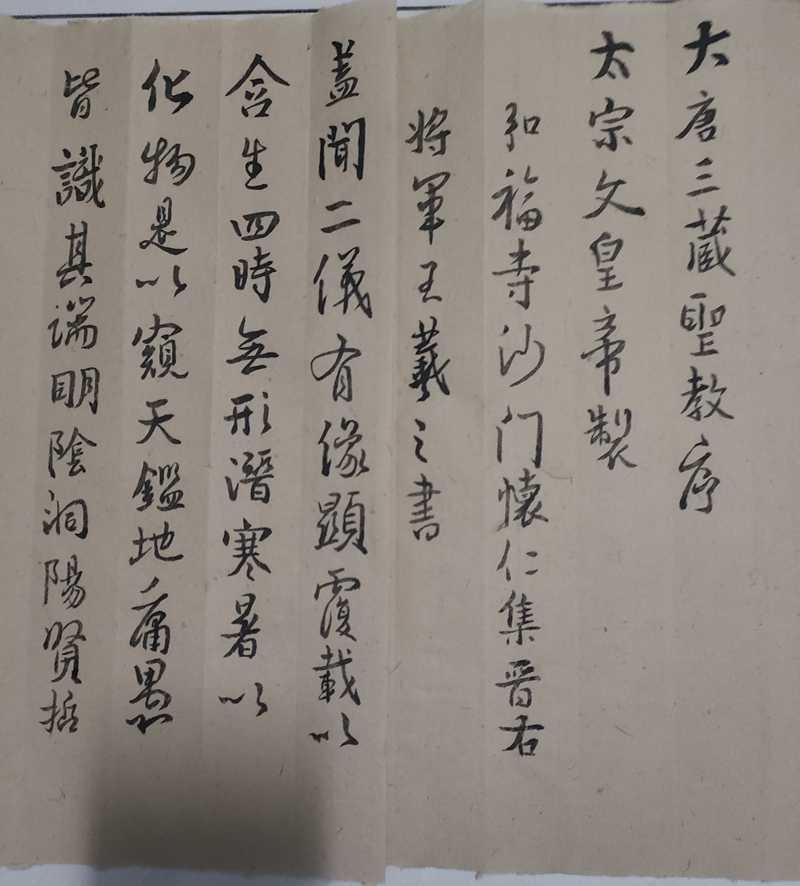 大唐三藏聖教序
太宗文皇帝製
弘福寺沙门懷仁集晋右
將軍王羲之書
盖聞二儀有像顯覆載以
含生四時無形潛寒暑以
化物是以窺天鑑地庸愚
皆識其端明陰洞陽賢哲